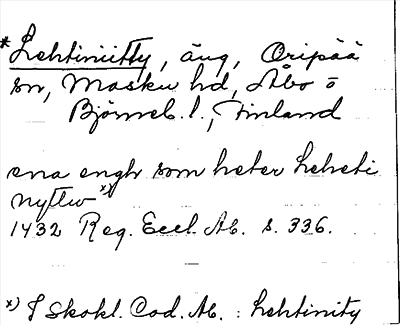 * Lehtiniitty, äng, Oripää
sn, Masku hd, Åbo o
Björneb. l., Finland
ena engh som heter helveti
nyttw x)
1432 Reg. Eccl. Ab. s. 336.
x) I Skokl. Cod. Ab. : hehtinity